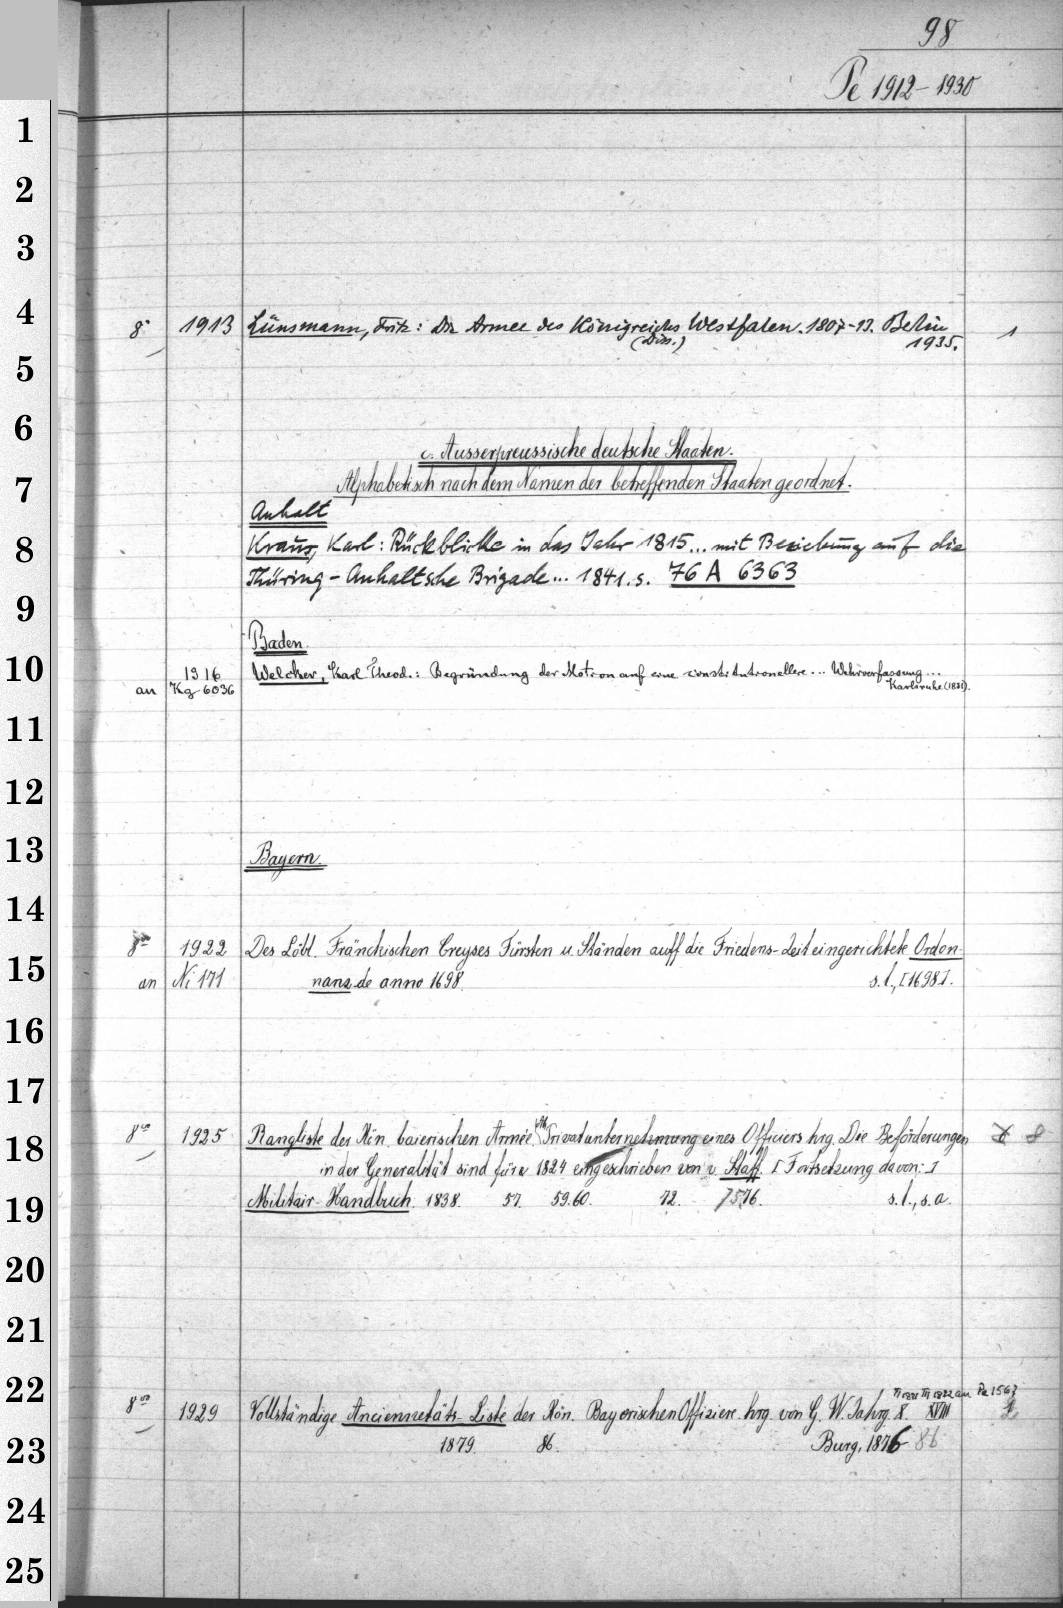 98
Pe 1912-1930
8° 1913 Lünsmann, Fritz: Die Armee des Königreichs Westfalen. 1807-13. Berlin 1
(Diss.) 1935.
c. Ausserpreussische deutsche Staaten.
Alphabetisch nach dem Namen der betreffenden Staaten geordnet.
Anhalt
Kraus, Karl: Rückblicke in das Jahr 1815... mit Beziehung auf die
Thüring-Anhaltsche Brigade... 1841. s. 76 A 6363
Baden
1916 Welcker, Karl Theod.: Begründung der Motion auf eine constitutionellere... Wehrverfassung...
an Kg 6036 Karlsruhe (1831).
Bayern.
8° 1922 Des Löbl. Fränckischen Creyses Fürsten u. Ständen auff die Friedens-Zeit eingerichtete Ordon-
an Ni 171 nanz de anno 1698. s. l., [1698].
8vo 1925 Rangliste der Kön. baierischen Armée. Als Privatunternehmung eines Officiers hrg. Die Beförderungen 8
in der Generalität sind für a 1824 eingeschrieben von v. Staff. [Fortsetzung davon:]
Militair-Handbuch. 1838. 57. 59.60. 72. 75.76. s. l., s. a.
an Pe 1567
8vo 1929 Vollständige Anciennetäts-Liste der Kön. Bayerischen Offiziere. hrg. von G. W. Jahrg. X. XVIII
1879. 86. Burg, 1876 86
1
2
3
4
5
6
7
8
9
10
11
12
13
14
15
16
17
18
19
20
21
22
23
24
25